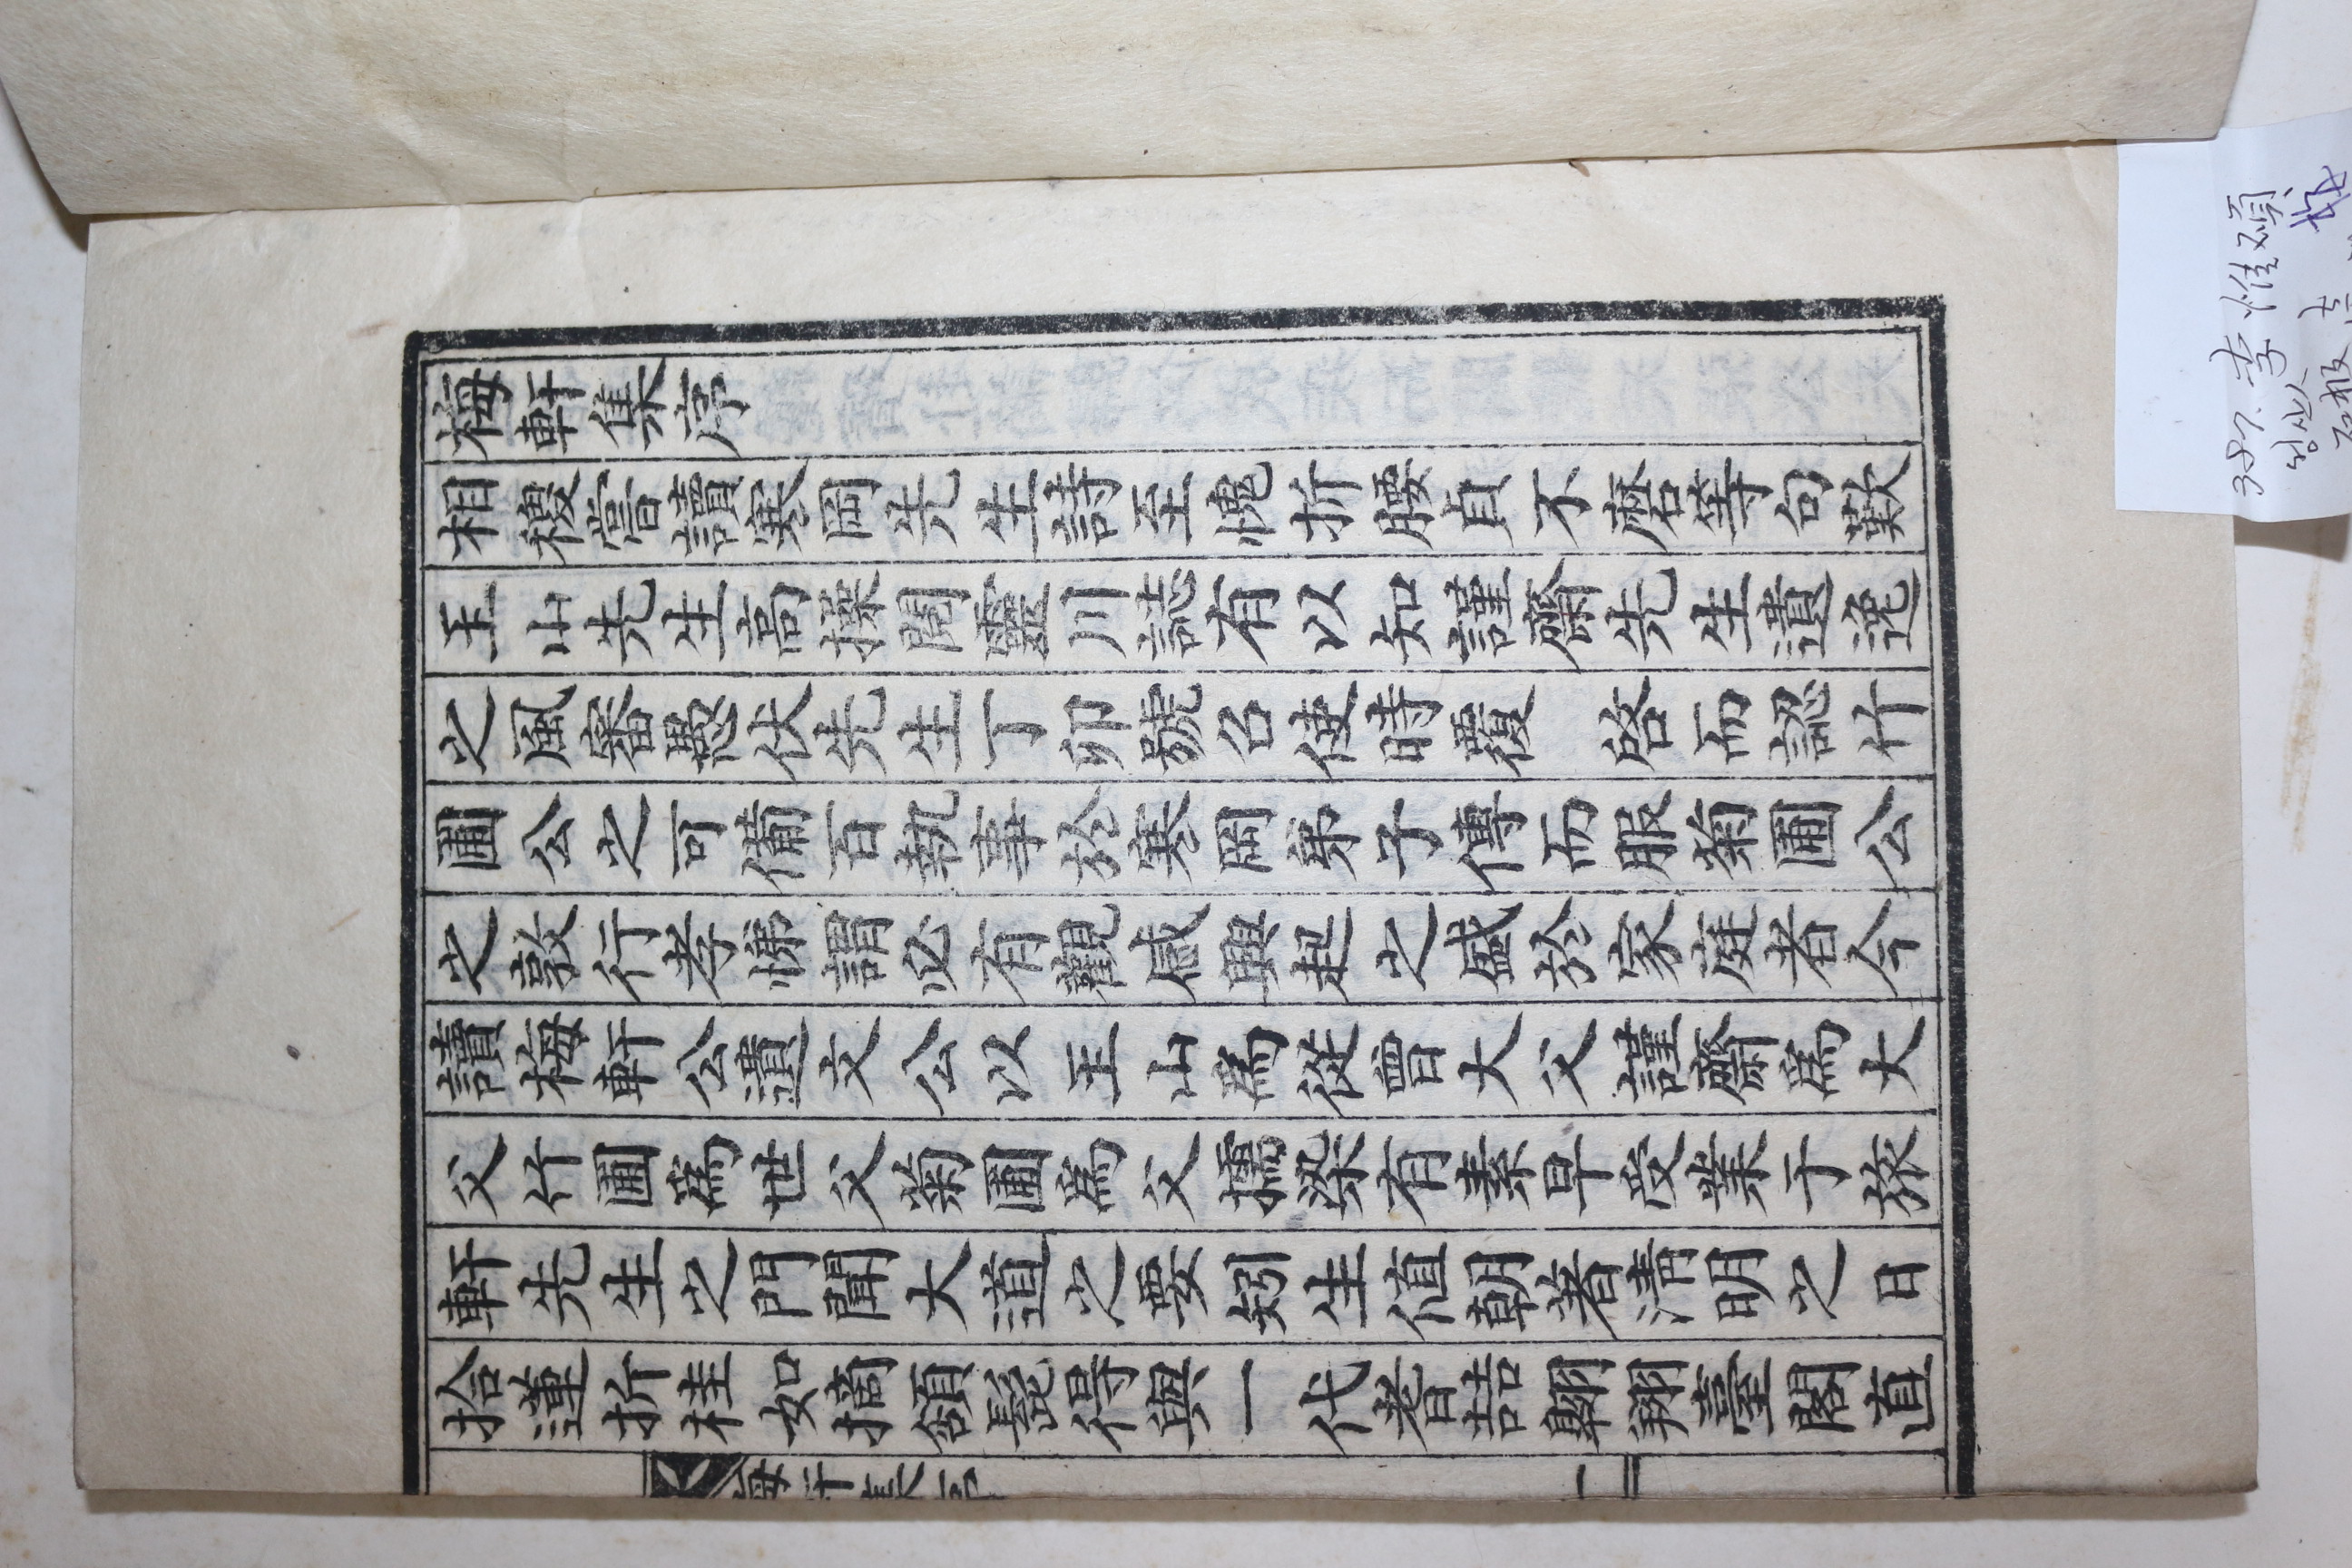 梅軒集序
相稷嘗讀寒岡先生詩至愧折腰貞不磨等句歎
王山先生高操閱靈川誌有以知謹齋先生遺逸
之風審愚伏先生丁卯號召使時覆 啓而認竹
圃公之可備百執事於寒岡弟子傳而服菊圃公
之敦行孝悌謂必有觀感興起之盛於家庭者今
讀梅軒公遺文公以王山爲從曾大父謹齋爲大
父竹圃爲世父菊圃爲父擩染有素早受業于旅
軒先生之門聞大道之要矧生値朝著淸明之日
拾蓮折桂如摘頷髭得與一代耆喆翶翔臺閣直
梅軒集序
一
387. 李惟碩